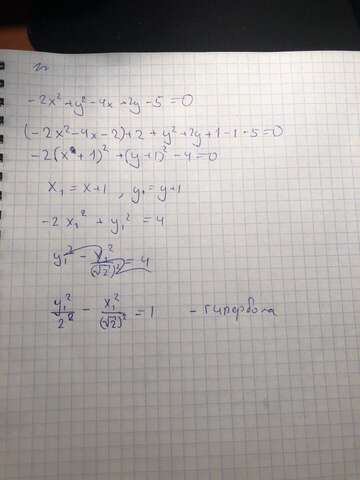 -2x²+y²-4x+2y-5=0
(-2x²-4x-2)+2+y²+2y+1-1·5=0
-2(x+1)²+(y+1)²-4=0
x₁=x+1, y₁=y+1
-2x₁²+y₁²=4
y₁²-x₁²/(√2)²=4
y₁²/2²-x₁²/(√2)²=1 - гипербола